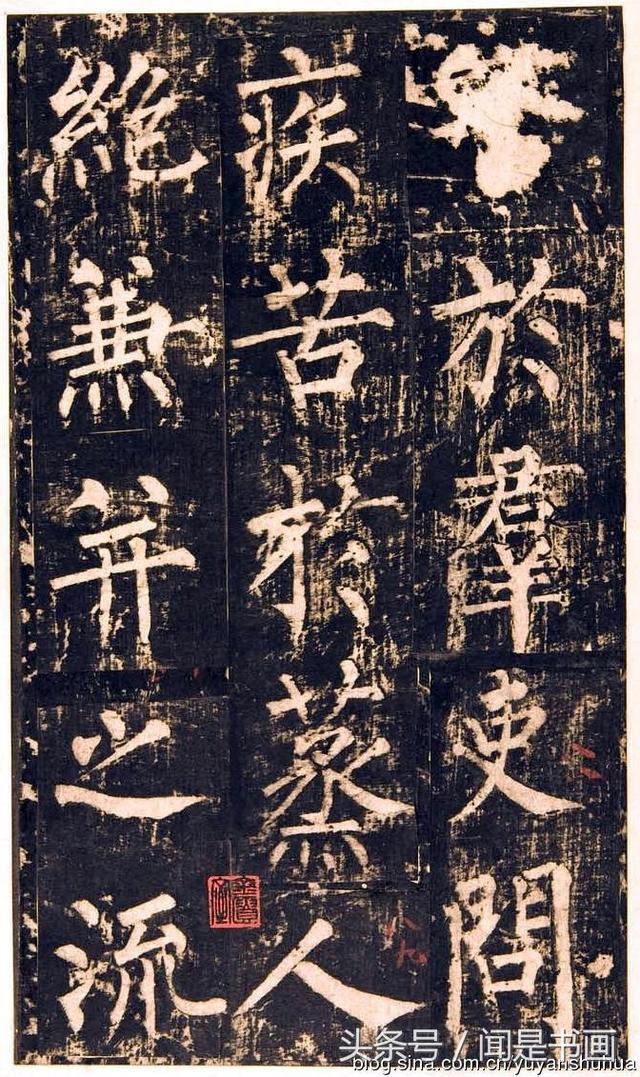 於羣吏問
疾苦於蒸人
絶兼并之流
头条号 / 闻是书画
blog.sina.com.cn/yuyanshuhua